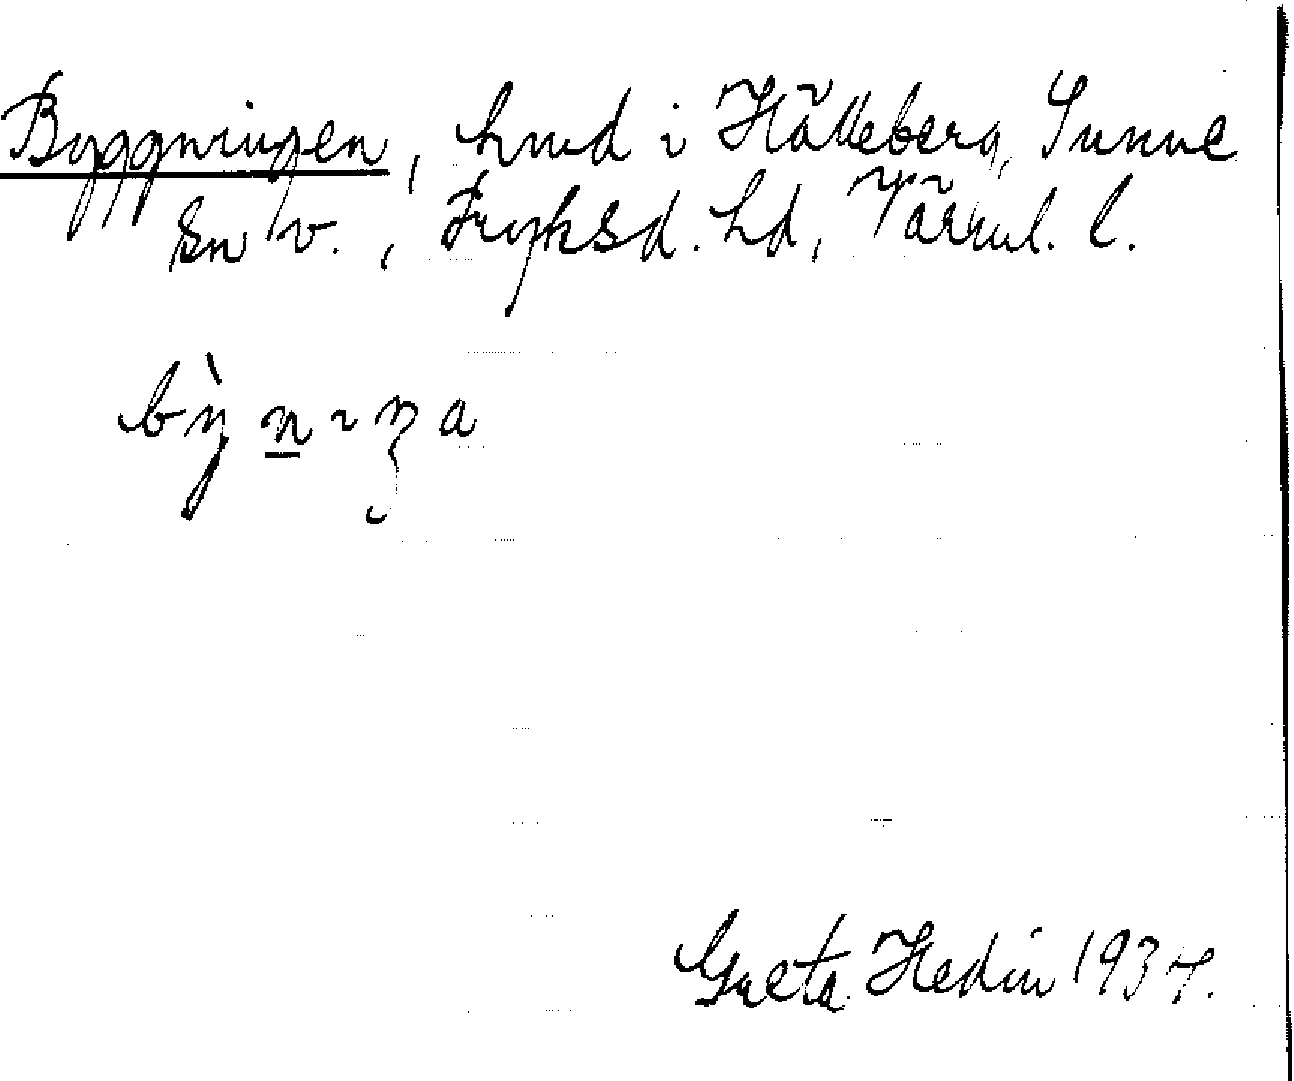 Byggningen, hmd i Hälleberg, Sunne
sn v., Fryksd. hd, Värml. l.
Greta Hedin 1934.